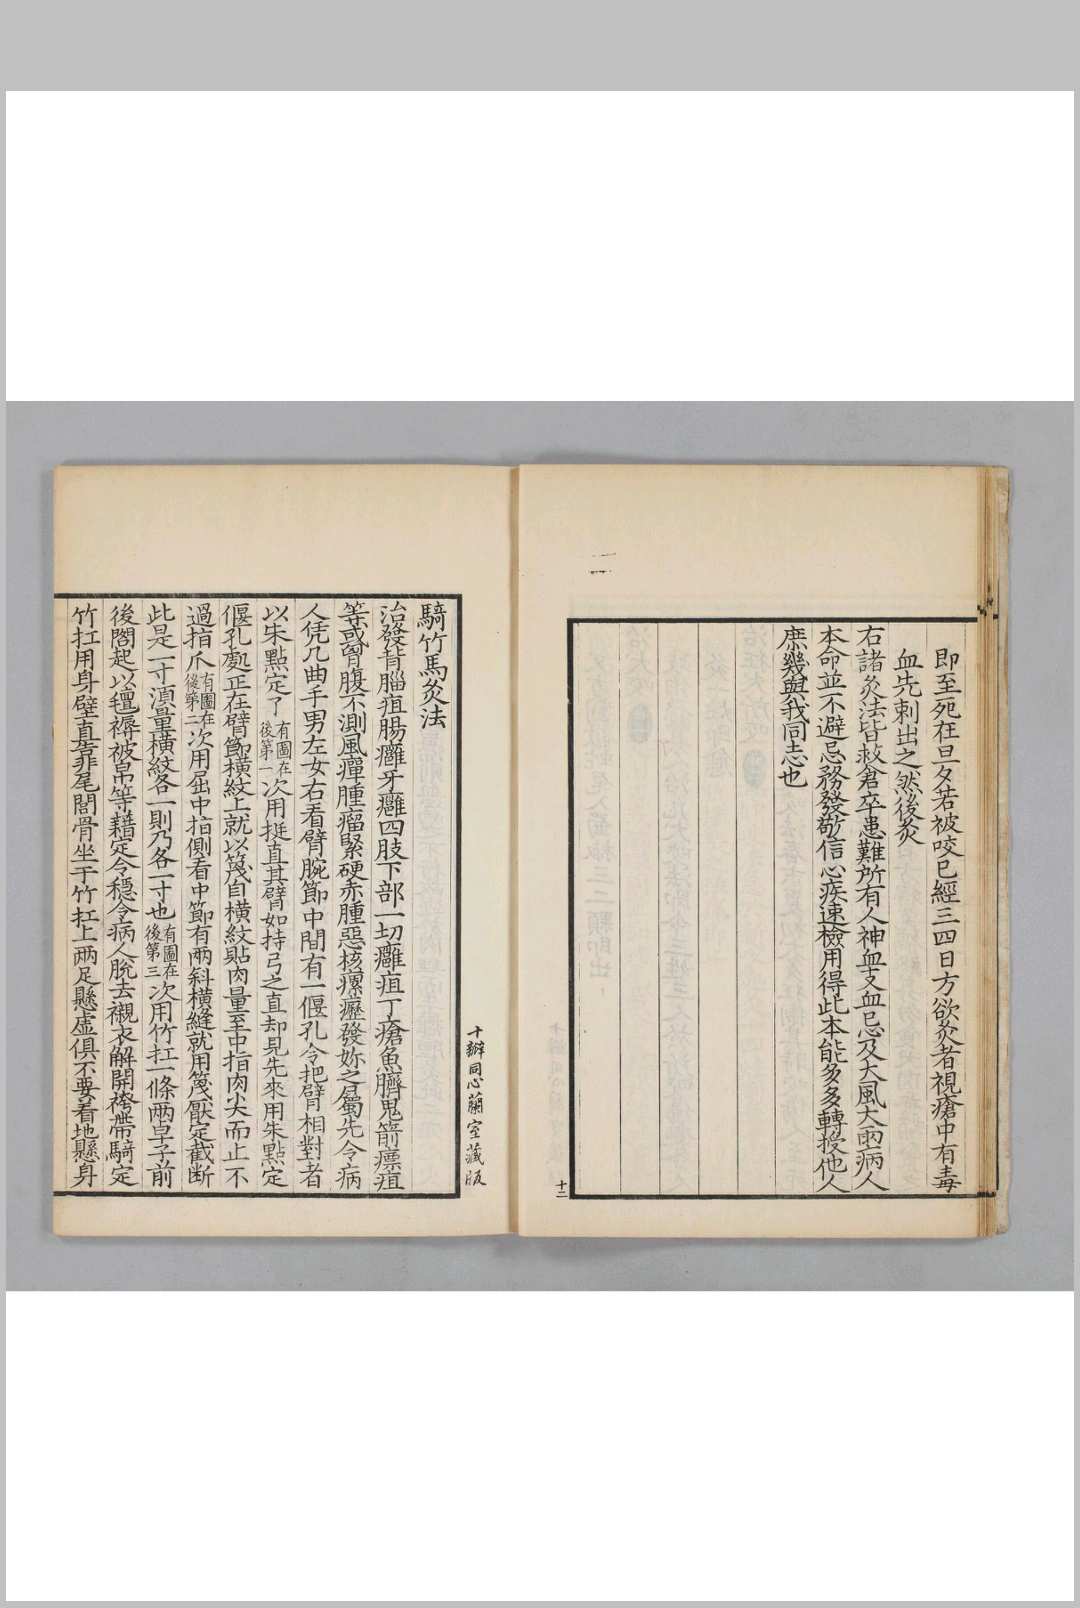 即至死在旦夕若被咬已經三四日方欲灸者視瘡中有毒
血先刺出之然後灸
右諸灸法皆救倉卒患難所有人神血支血忌及大風大雨病人
本命並不避忌務發敬信心疾速檢用得此本能多多轉授他人
庶幾與我同志也
十二
十瓣同心蘭室藏版
騎竹馬灸法
治發背腦疽腸癰牙癰四肢下部一切癰疽丁瘡魚臍鬼箭瘭疽
等或胷腹不測風癉腫瘤緊硬赤腫惡核瘰癧發妳之屬先令病
人凭几曲手男左女右看臂腕節中間有一偃孔令把臂相對者
以朱點定了有圖在後第一次用挺直其臂如持弓之直却見先來用朱點定
偃孔處正在臂節橫紋上就以篾自橫紋貼肉量至中指肉尖而止不
過指爪有圖在後第二次用屈中指側看中節有兩斜橫縫就用篾壓定截斷
此是一寸須量橫紋各一則乃各一寸也有圖在後第三次用竹扛一條兩卓子前
後閣起以氊褥被帛等藉定令穩令病人脫去襯衣解開袴帶騎定
竹扛用身壁直靠尾閭骨坐于竹扛上兩足懸虛俱不要着地懸身